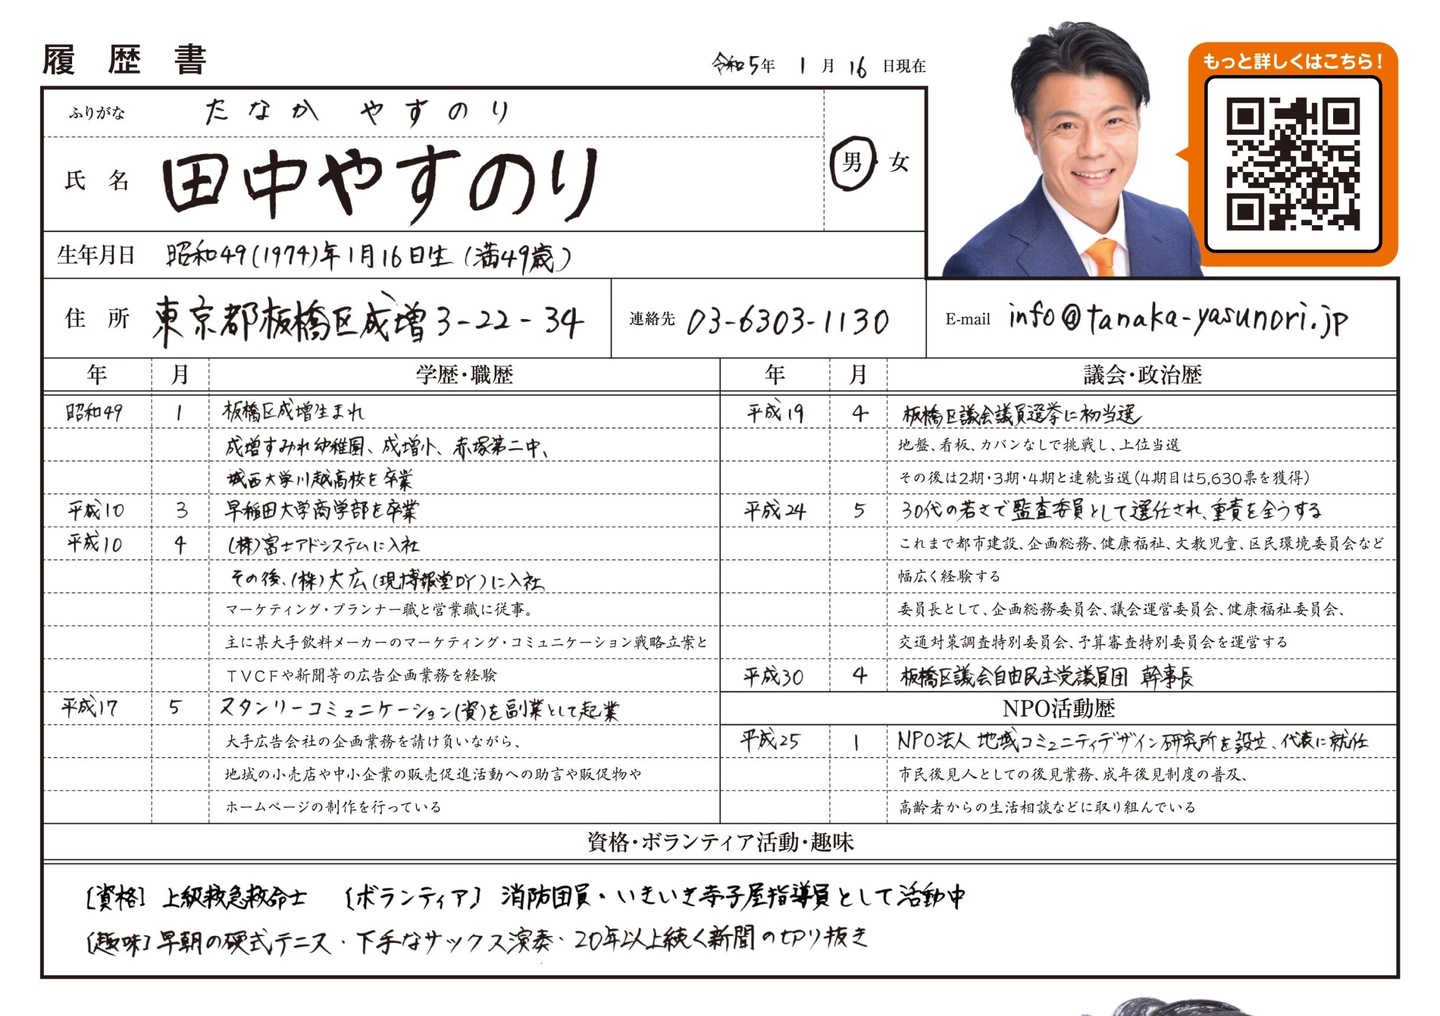 履歴書
令和5年 1月 16日現在
もっと詳しくはこちら!
ふりがな たなか やすのり
氏名 田中やすのり
男・女
生年月日 昭和49(1974)年1月16日生(満49歳)
住所 東京都板橋区成増3-22-34
連絡先 03-6303-1130
E-mail info@tanaka-yasunori.jp
年 月 学歴・職歴
昭和49 1 板橋区成増生まれ
成増すみれ幼稚園、成増小、赤塚第二中、
城西大学川越高校を卒業
平成10 3 早稲田大学商学部を卒業
平成10 4 (株)富士アドシステムに入社
その後、(株)大広(現博報堂DY)に入社
マーケティング・プランナー職と営業職に従事。
主に某大手飲料メーカーのマーケティング・コミュニケーション戦略立案と
TVCFや新聞等の広告企画業務を経験
平成17 5 スタンリーコミュニケーション(資)を副業として起業
大手広告会社の企画業務を請け負いながら、
地域の小売店や中小企業の販売促進活動への助言や販促物や
ホームページの制作を行っている
年 月 議会・政治歴
平成19 4 板橋区議会議員選挙に初当選
地盤、看板、カバンなしで挑戦し、上位当選
その後は2期・3期・4期と連続当選(4期目は5,630票を獲得)
平成24 5 30代の若さで監査委員として選任され、重責を全うする
これまで都市建設、企画総務、健康福祉、文教児童、区民環境委員会など
幅広く経験する
委員長として、企画総務委員会、議会運営委員会、健康福祉委員会、
交通対策調査特別委員会、予算審査特別委員会を運営する
平成30 4 板橋区議会自由民主党議員団 幹事長
NPO活動歴
平成25 1 NPO法人 地域コミュニティデザイン研究所を設立、代表に就任
市民後見人としての後見業務、成年後見制度の普及、
高齢者からの生活相談などに取り組んでいる
資格・ボランティア活動・趣味
[資格] 上級救急救命士 [ボランティア] 消防団員・いきいき寺子屋指導員として活動中
[趣味] 早朝の硬式テニス・下手なサックス演奏・20年以上続く新聞の切り抜き